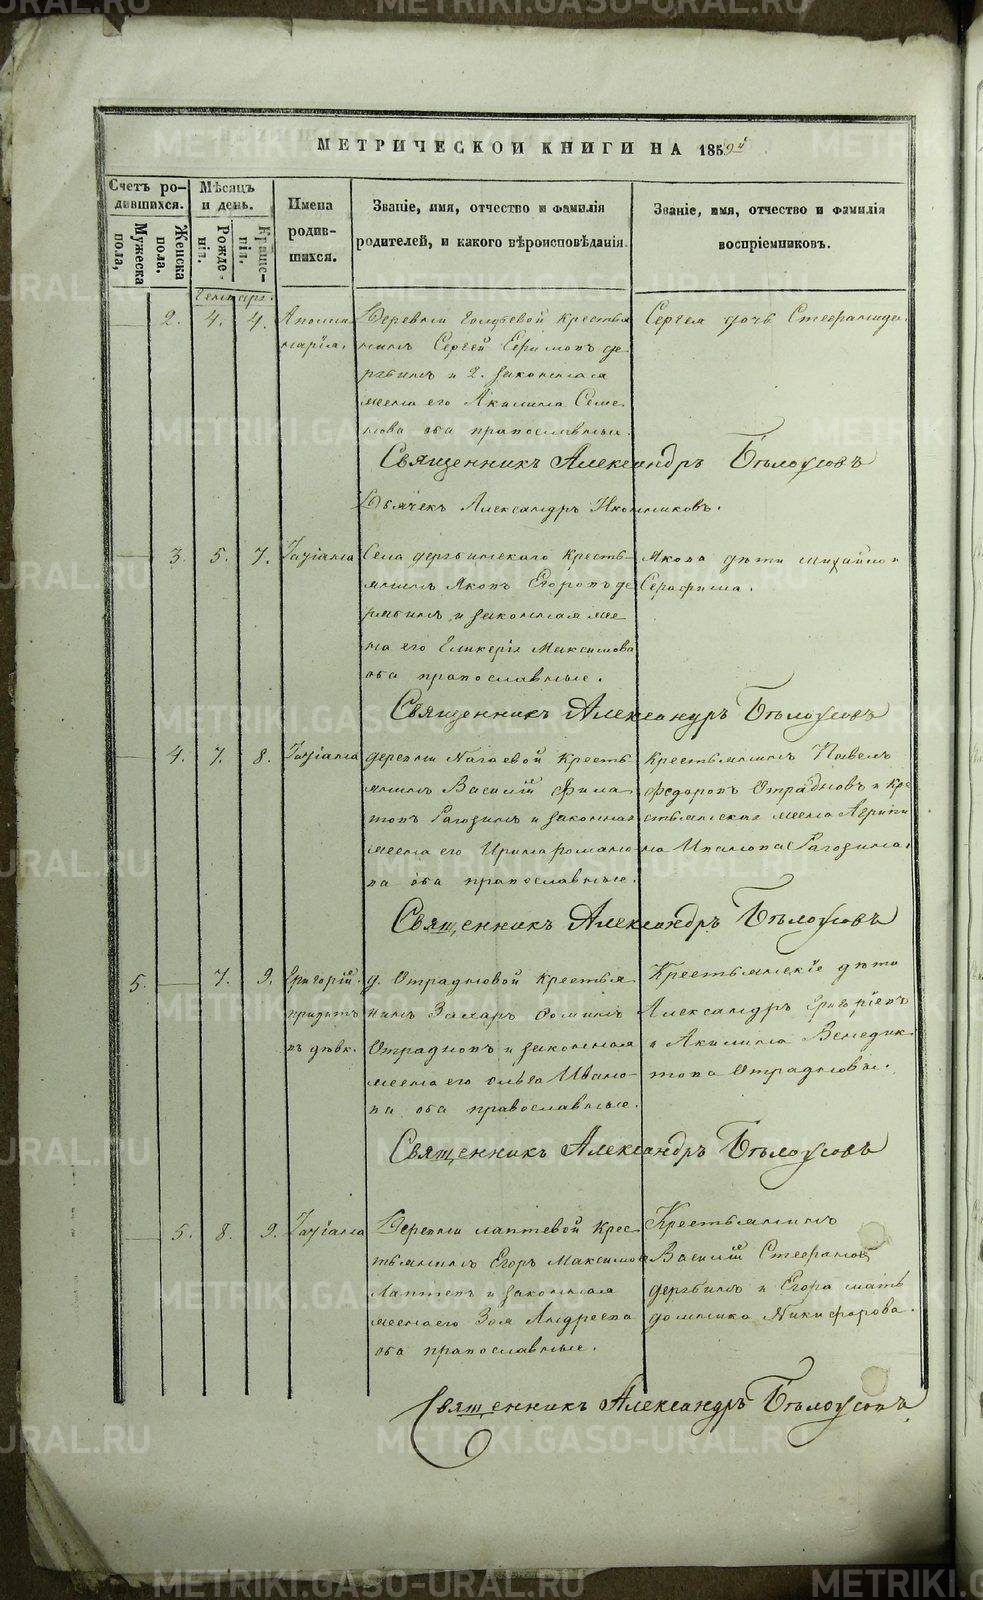 МЕТРИЧЕСКОЙ КНИГИ НА 1859й
Счетъ ро-
дившихся.
Мѣсяцъ
и день.
Имена
родив-
шихся.
Званіе, имя, отчество и фамилія
родителей, и какого вѣроисповѣданія.
Званіе, имя, отчество и фамилія
воспріемниковъ.
Мужеска
пола,
Женска
пола.
Рожде-
нія.
Креще-
нія.
Генварь.
2. 4. 4.
Аполли
нарія.
Деревни Голубевой крестья
нинъ Сергей Ефимовъ де
рябинъ и 2. законная
жена его Акилина Семе
нова оба православные.
Сергея дочь Стефанида.
Священникъ Александръ Бѣлоусовъ
Дьячекъ Александръ Иконниковъ.
3. 5. 7.
Татіана
Села дерябинскаго кресть
янинъ Яковъ Егоровъ де
рябинъ и законная же
на его Гликерія Максимова
оба православные.
Якова дѣти Михайло и
Серафима.
Священникъ Александръ Бѣлоусовъ
4. 7. 8.
Татіана
деревни Нагаевой кресть
янинъ Василій Фила
товъ Рагозинъ и законная
жена его Ирина Романо
ва оба православные.
крестьянинъ Павелъ
Федоровъ Отрадновъ и кре
стьянская жена Агрипи
на Иванова Рагозина.
Священникъ Александръ Бѣлоусовъ
5. 7. 9.
Григорій.
д. Отрадновой крестья
нинъ Захаръ Фоминъ
Отрадновъ и законная
жена его Ольга Ивано
ва оба православные.
Крестьянскіе дѣти
Александръ Григоріевъ
и Акилина Венедик
това Отрадновы.
Священникъ Александръ Бѣлоусовъ
5. 8. 9.
Татіана
Деревни лаптевой крес
тьянинъ Егоръ Максимов
Лаптевъ и законная
жена его Зоя Андреева
оба православные.
Крестьянинъ
Василій Стефановъ
дерябинъ и Егора мать
домника Никифорова.
Священникъ Александръ Бѣлоусовъ
METRIKI.GASO-URAL.RU